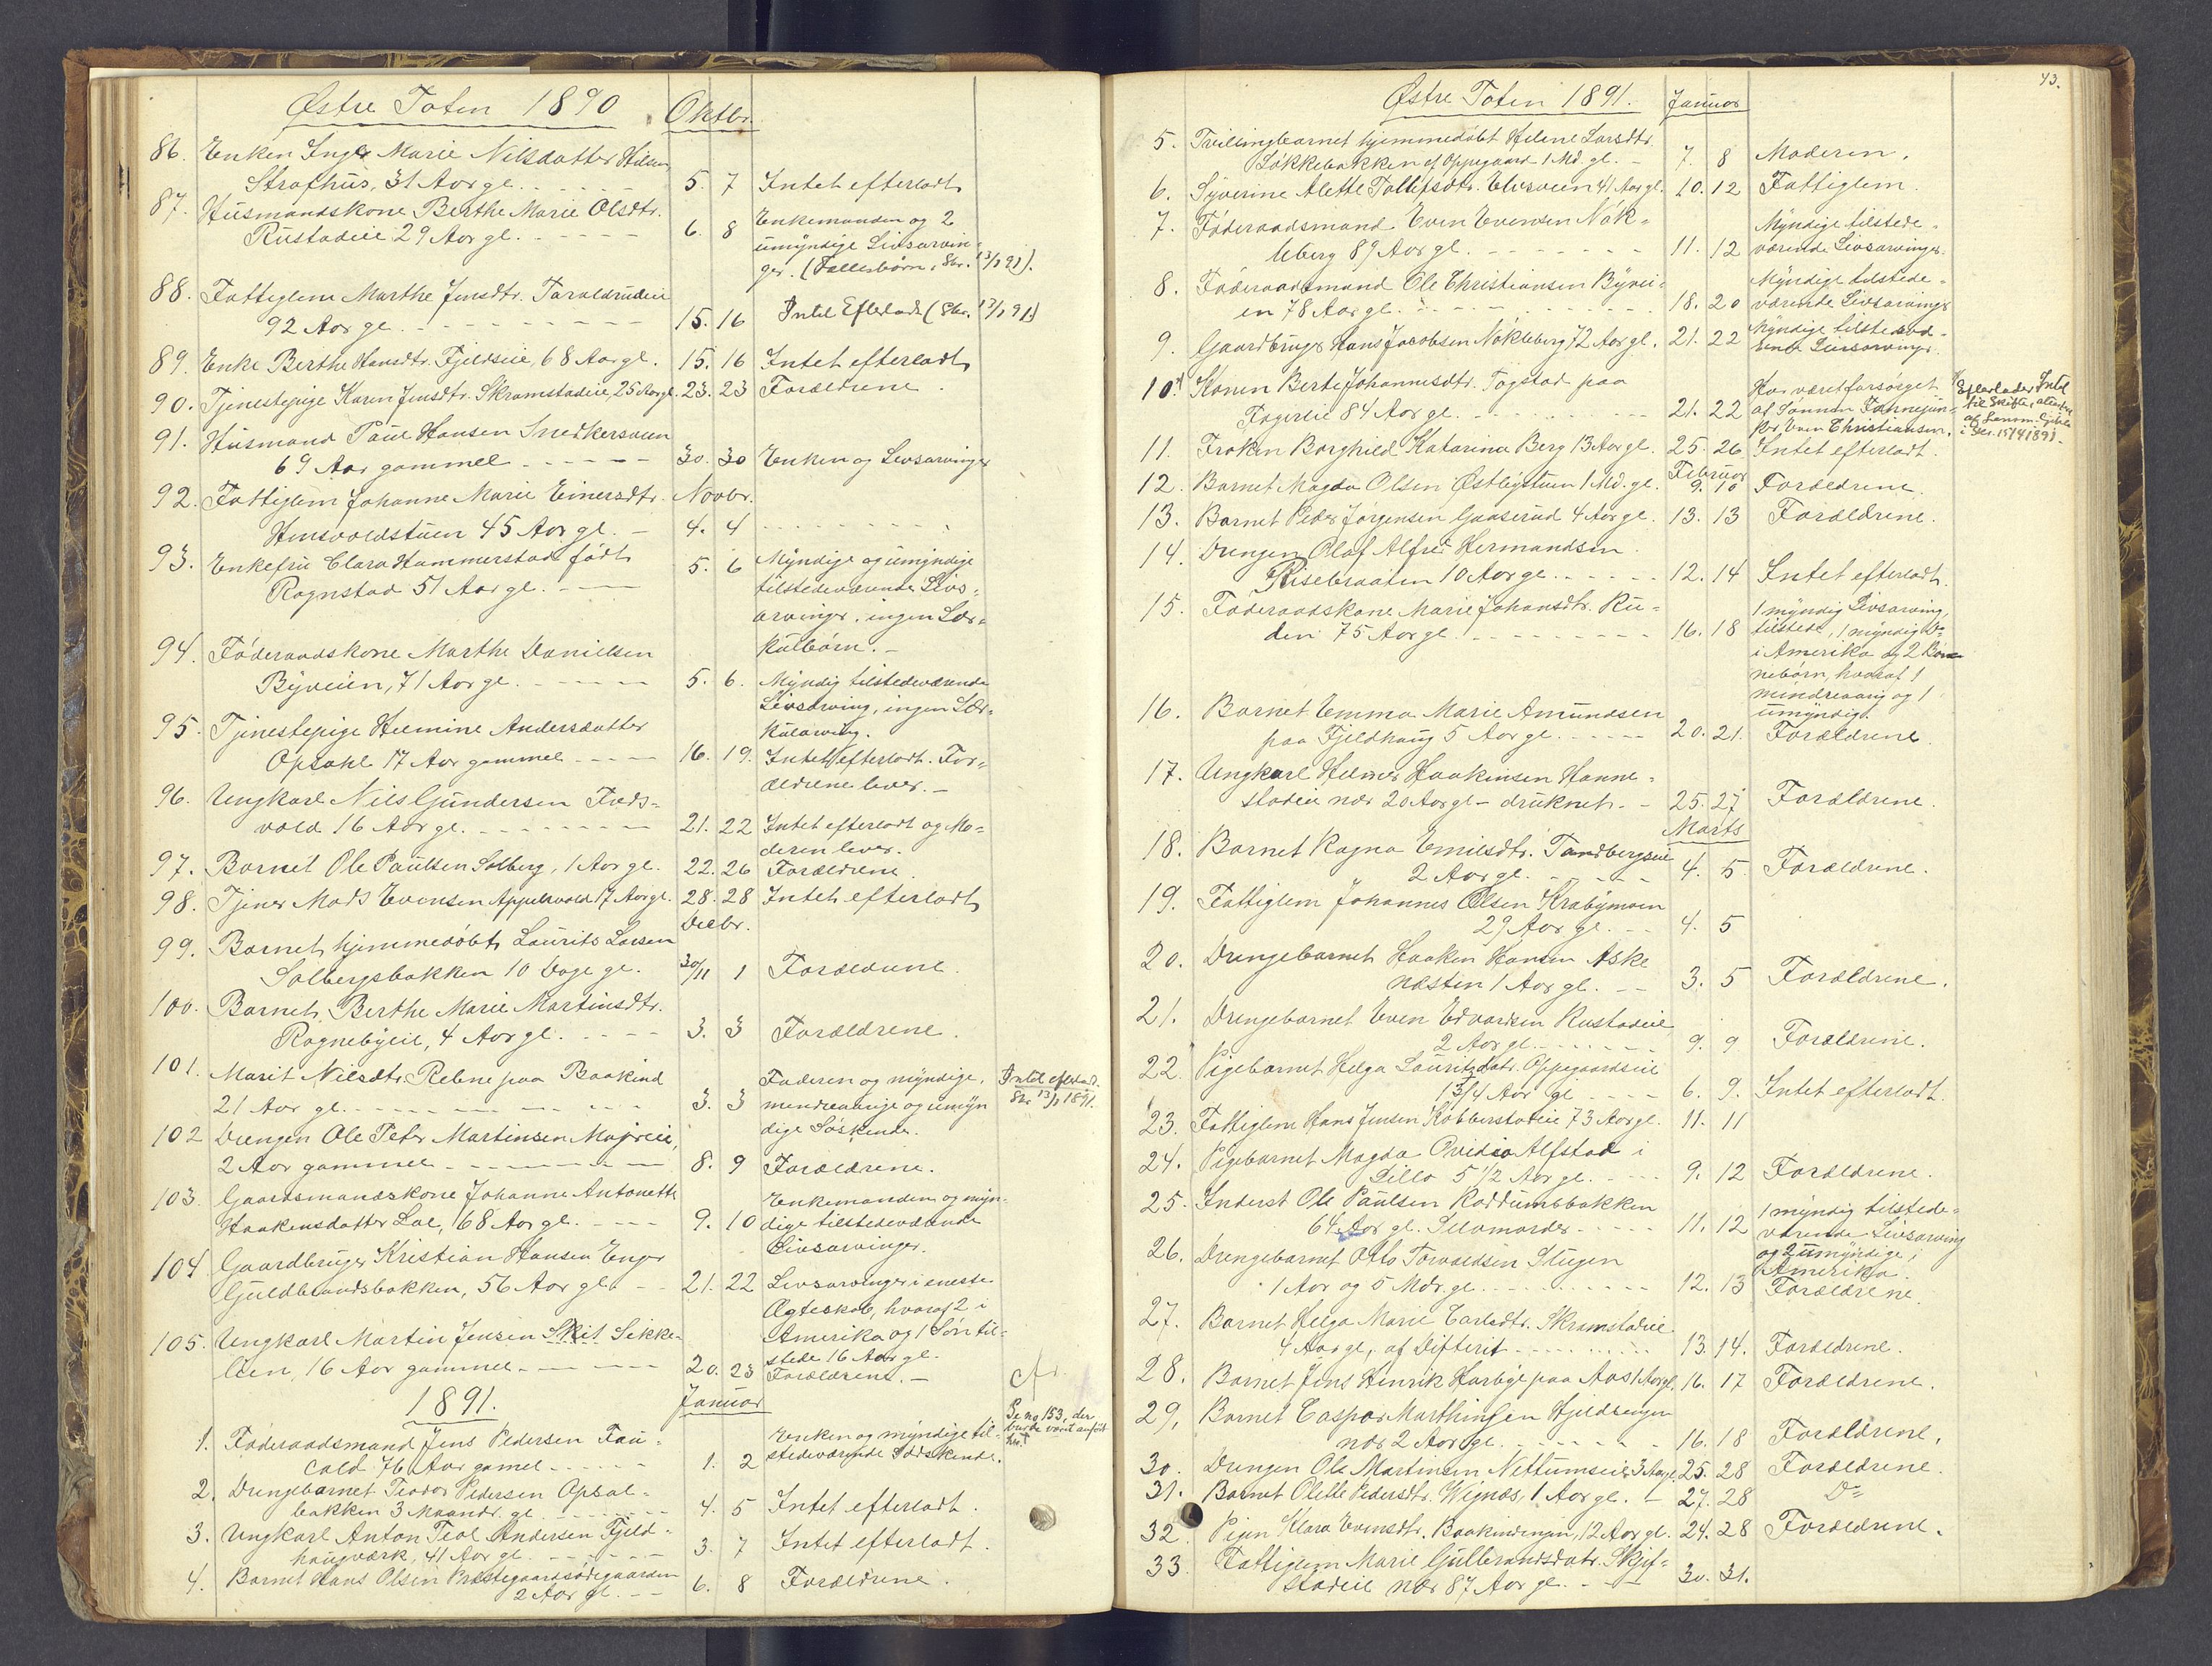 Østre Toten 1890
Oktbr.
86. Enken Inger Marie Nilsdatter
Strafhus, 31 Aar gl. 5. 7 Intet efterladt
87. Husmandskone Berthe Marie Olsdtr.
Rustadeie 29 Aar gl. 6. 8 Enkemanden og 2
umyndige Livsarvin-
ger. (Fællesbørn, Skr. 13/1 91).
88. Fattiglem Marthe Jensdtr. Taraldrudeie
92 Aar gl. 15. 16 Intet Efterladt (Skr. 13/1 91)
89. Enke Berthe Hansdtr. Fjeldseie, 68 Aar gl. 15. 16 Intet efterladt
90. Tjenestepige Karen Jensdtr. Skramstadeie, 25 Aar gl. 23. 23 Forældrene.
91. Husmand Paul Hansen Snedkersveen
69 Aar gammel 30. 30 Enken og Livsarvinger
92. Fattiglem Johanne Marie Einersdtr. Novbr.
Hensvoldstuen 45 Aar gl. 4. 4
93. Enkefru Clara Hammerstad født 5. 6 Myndige og umyndige
Rognstad 51 Aar gl. tilstedeværende Livs-
arvinger, ingen Sær-
kulbørn.
94. Føderaadskone Marthe Danielsen
Byveien, 71 Aar gl. 5. 6. Myndig tilstedeværende
Livsarving, ingen Sær-
kularving.
95. Tjenestepige Helmine Andersdatter
Opsahl 17 Aar gammel 16. 19. Intet efterladt. For-
ældrene lever.
96. Ungkarl Nils Gundersen
vold 16 Aar gl. 21. 22 Intet efterladt og Mo-
deren lever.
97. Barnet Ole Paulsen Solberg, 1 Aar gl. 22. 26 Forældrene.
98. Tjener Mads Evensen Appelsvold 17 Aar gl. 28. 28 Intet efterladt
Decbr.
99. Barnet hjemmedøbt Laurits Larsen
Solbergsbakken 10 Dage gl. 30/11 1 Forældrene.
100. Barnet Berthe Marie Martinsdtr.
Rognebyeie, 4 Aar gl. 3. 3 Forældrene.
101. Marit Nilsdtr. Rebne paa Baakind Faderen og myndige, Intet efterlad.
21 Aar gl. 3. 3 mindreaarige og umyn Skr 13/1 1891.
dige Søskende.
102 Drengen Ole Peter Martinsen Majreie,
2 Aar gammel 8. 9 Forældrene.
103. Gaardsmandskone Johanne Antonette Enkemanden og myn-
Haakensdatter Lae, 68 Aar gl. 9. 10 dige tilstedeværende
Livsarvinger.
104 Gaardbruger Kristian Hansen Enger
Guldbrandsbakken, 56 Aar gl. 21. 22 Livsarvinger i eneste
Ægteskab, hvoraf 2 i
Amerika og 1 Søn til-
stede 16 Aar gl.
105. Ungkarl Martin Jensen Skit Sikke-
lien, 16 Aar gammel 20. 23 Forældrene.
1891. Januar
Se no 153, der
burde været anført
her.
1. Føderaadsmand Jens Pedersen Fau- Enken og myndige til-
cald 76 Aar gamel 1. 2 stedeværende Sødskende.
2. Drengebarnet Teodor Pedersen Opsal-
bakken 3 Maandr. gl. 4. 5 Intet efterladt.
3. Ungkarl Anton Teol Andersen Fjeld-
haugværk, 41 Aar gl. 3. 7 Intet efterladt.
4. Barnet Hans Olsen Præstegaardsødegaarden
2 Aar gl. 6. 8 Forældrene.
43.
Østre Toten 1891. Januar
5. Tvillingbarnet hjemmedøbt Helene Larsdtr.
Løkkebakken af Oppegaard 1 Md. gl. 7. 8 Moderen.
6. Syverine Alette Tollefsdtr. Elvesveen 41 Aar gl. 10. 12 Fattiglem.
7. Føderaadsmand Even Evensen Nøk- Myndige tilstede-
leberg 89 Aar gl. 11. 12 værende Livsarvinger.
8. Føderaadsmand Ole Christiansen Byvei- Myndige tilstede-
en 78 Aar gl. 18. 20 værende Livsarvinger
9. Gaardbruger Hans Jacobsen Nøkleberg 72 Aar gl. 21. 22 Myndige tilstedevæ-
rende Livsarvinger.
10. Konen Berte Johannesdtr. Togstad paa Har været forsørget
Fagerlie 84 Aar gl. 21. 22 af Sønnen Fannejun-
ker Even Christiansen.
Efterlader Intet
til Skifte,
af Lensm.
i Skr. 15/4 1891.
11. Frøken Borghild Katarina Berg 13 Aar gl. 25. 26 Intet efterladt.
Februar
12. Barnet Magda Olsen Østbystuen 1 Md. gl. 9. 10 Forældrene.
13. Barnet Peder Jørgensen Gaaserud 4 Aar gl. 13. 13 Forældrene.
14. Drengen Olaf Alfred Hermandsen
Risebraaten 10 Aar gl. 12. 14 Intet efterladt.
15. Føderaadskone Marie Johansdtr. Ru- 1 myndig Livsarving,
den 75 Aar gl. 16. 18 tilstede, 1 myndig Do
i Amerika og 2 Bør-
nebørn, hvoraf 1
mindreaarig og 1
umyndig.
16. Barnet Emma Marie Amundsen
paa Fjeldhaug 5 Aar gl. 20. 21. Forældrene.
17. Ungkarl Helmer Haakensen Hanne-
stadeie nær 20 Aar gl - druknet. 25. 27 Forældrene.
Marts
18. Barnet Ragna Emilsdtr. Tandbergseie
2 Aar gl. 4. 5 Forældrene.
19. Fattiglem Johannes Olsen Krabymoen
29 Aar gl. 4. 5
20. Drengebarnet Haaken Hansen Aske
næstin 1 Aar gl. 3. 5 Forældrene.
21. Drengebarnet Even Edvardsen Rustadeie
2 Aar gl. 9. 9 Forældrene.
22. Pigebarnet Helga Lauritzdatr. Oppegaardseie
1 3/4 Aar gl 6. 9. Intet efterladt.
23. Fattiglem Hans Jensen Kobberstadeie 73 Aar gl. 11. 11
24. Pigebarnet Magda Ovidia Alfstad i
Lillo 5 1/2 Aar gl. 9. 12 Forældrene.
25. Inderst Ole Paulsen Roddumsbakken 1 myndig tilstede-
64 Aar gl. Selvmorder. 11. 12 værende Livsarving
og 2 umyndige i
Amerika.
26. Drengebarnet Otto Torvaldsen Stugen
1 Aar og 5 Mdr. gl. 12. 13 Forældrene.
27. Barnet Helga Marie Carlsdtr. Skramstadeie
4 Aar gl, af Difterit 13. 14. Forældrene.
28. Barnet Jens Henrik Harbye paa Aas 1 Aar gl. 16. 17 Forældrene.
29. Barnet Caspar Marthinsen Hjeldsengen
nær 2 Aar gl. 16. 18 Forældrene.
30. Drengen Ole Martinsen Nettumseie 3 Aar gl. 25. 28 Forældrene.
31. Barnet Olette Pedersdtr. Wignæs, 1 Aar gl. 27. 28 Do
32. Pigen Klara Evensdtr. Baakindengen, 12 Aar gl. 24. 28 Forældrene.
33 Fattiglem Marie Gulbrandsdatr. Skjef-
stadeie nær 87 Aar gl. 30. 31.